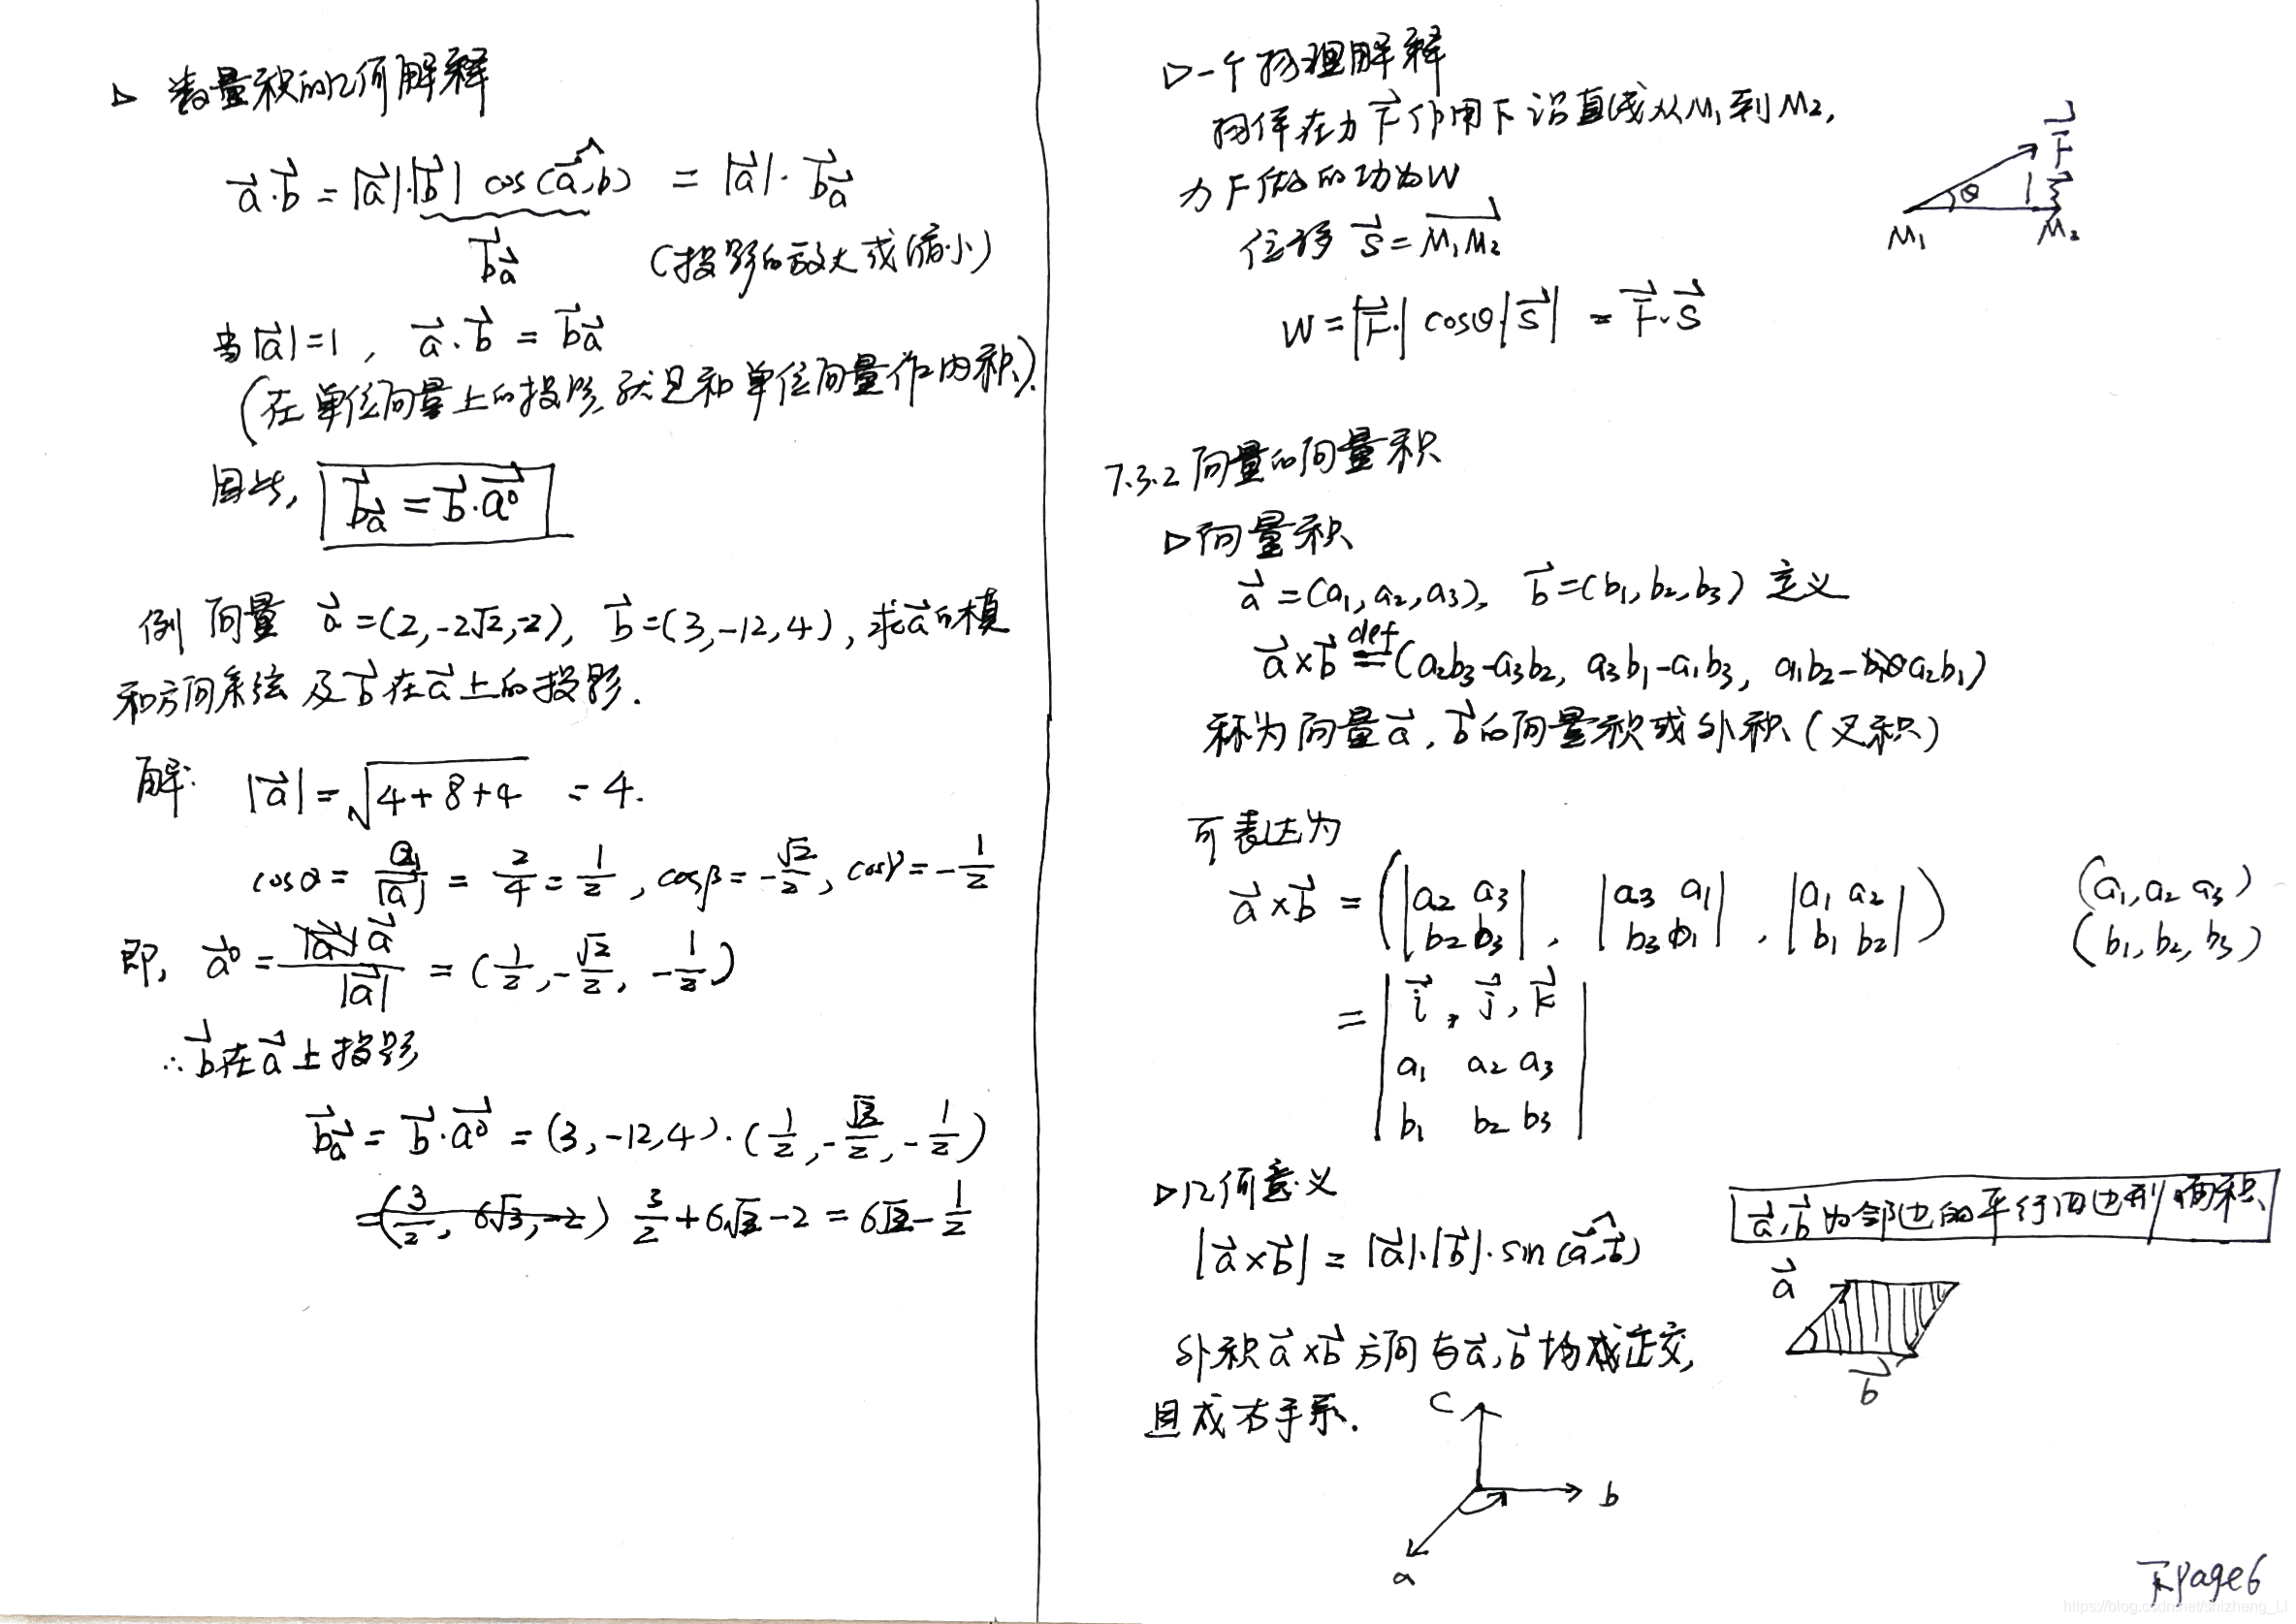 ▷ 数量积的几何解释
a⃗·b⃗ = |a⃗|·|b⃗| cos(a⃗,b) = |a⃗|·b⃗a⃗
b⃗a⃗ (投影的放大或缩小)
当|a⃗|=1, a⃗·b⃗ = b⃗a⃗
(在单位向量上的投影就是和单位向量作内积).
因此, b⃗a⃗ = b⃗·a⃗⁰
例 向量 a⃗=(2,-2√2,-2), b⃗=(3,-12,4), 求a⃗的模
和方向余弦及b⃗在a⃗上的投影.
解: |a⃗|=√(4+8+4) = 4.
cosα = a₁/|a⃗| = 2/4 = 1/2, cosβ = -√2/2, cosγ = -1/2
即, a⃗⁰ = a⃗/|a⃗| = (1/2, -√2/2, -1/2)
∴ b⃗在a⃗上投影
b⃗a⃗ = b⃗·a⃗⁰ = (3,-12,4)·(1/2, -√2/2, -1/2)
=(3/2, 6√3, -2) 3/2+6√2-2 = 6√2-1/2
▷一个物理解释
物体在力F⃗作用下沿直线从M₁到M₂,
力F做的功为W
位移 S⃗ = M₁M₂
W = |F⃗·| cosθ·|S⃗| = F⃗·S⃗
F⃗
θ
M₁ M₂
7.3.2 向量的向量积
▷向量积
a⃗=(a₁,a₂,a₃), b⃗=(b₁,b₂,b₃) 定义
a⃗×b⃗ def= (a₂b₃-a₃b₂, a₃b₁-a₁b₃, a₁b₂-a₂b₁)
称为向量a⃗, b⃗的向量积或外积(叉积)
可表达为
a⃗×b⃗ = (|a₂ a₃|, |a₃ a₁|, |a₁ a₂|) (a₁,a₂ a₃)
|b₂ b₃| |b₃ b₁| |b₁ b₂| (b₁,b₂,b₃)
= | i⃗, j⃗, k⃗ |
| a₁ a₂ a₃ |
| b₁ b₂ b₃ |
▷几何意义
a⃗,b⃗为邻边的平行四边形面积
|a⃗×b⃗| = |a⃗|·|b⃗|·sin(a⃗,b⃗)
a⃗
b⃗
外积a⃗×b⃗方向与a⃗,b⃗均成正交,
且成右手系.
c
b
a
下Page6
https://blog.csdn.net/shizheng_Li